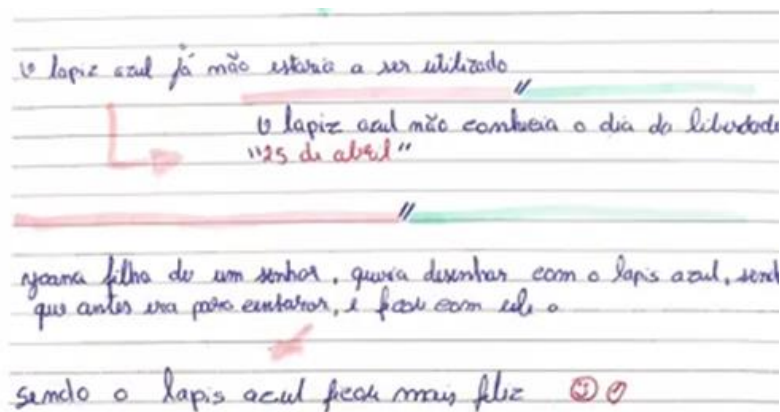 O lapiz azul já não estaria a ser utilizado
O lapiz azul não conhecia o dia da liberdade
"25 de abril"
Joana filha de um senhor, queria desenhar com o lapis azul, send
que antes era para censurar, e ficou com ele
sendo o lapis azul ficou mais feliz